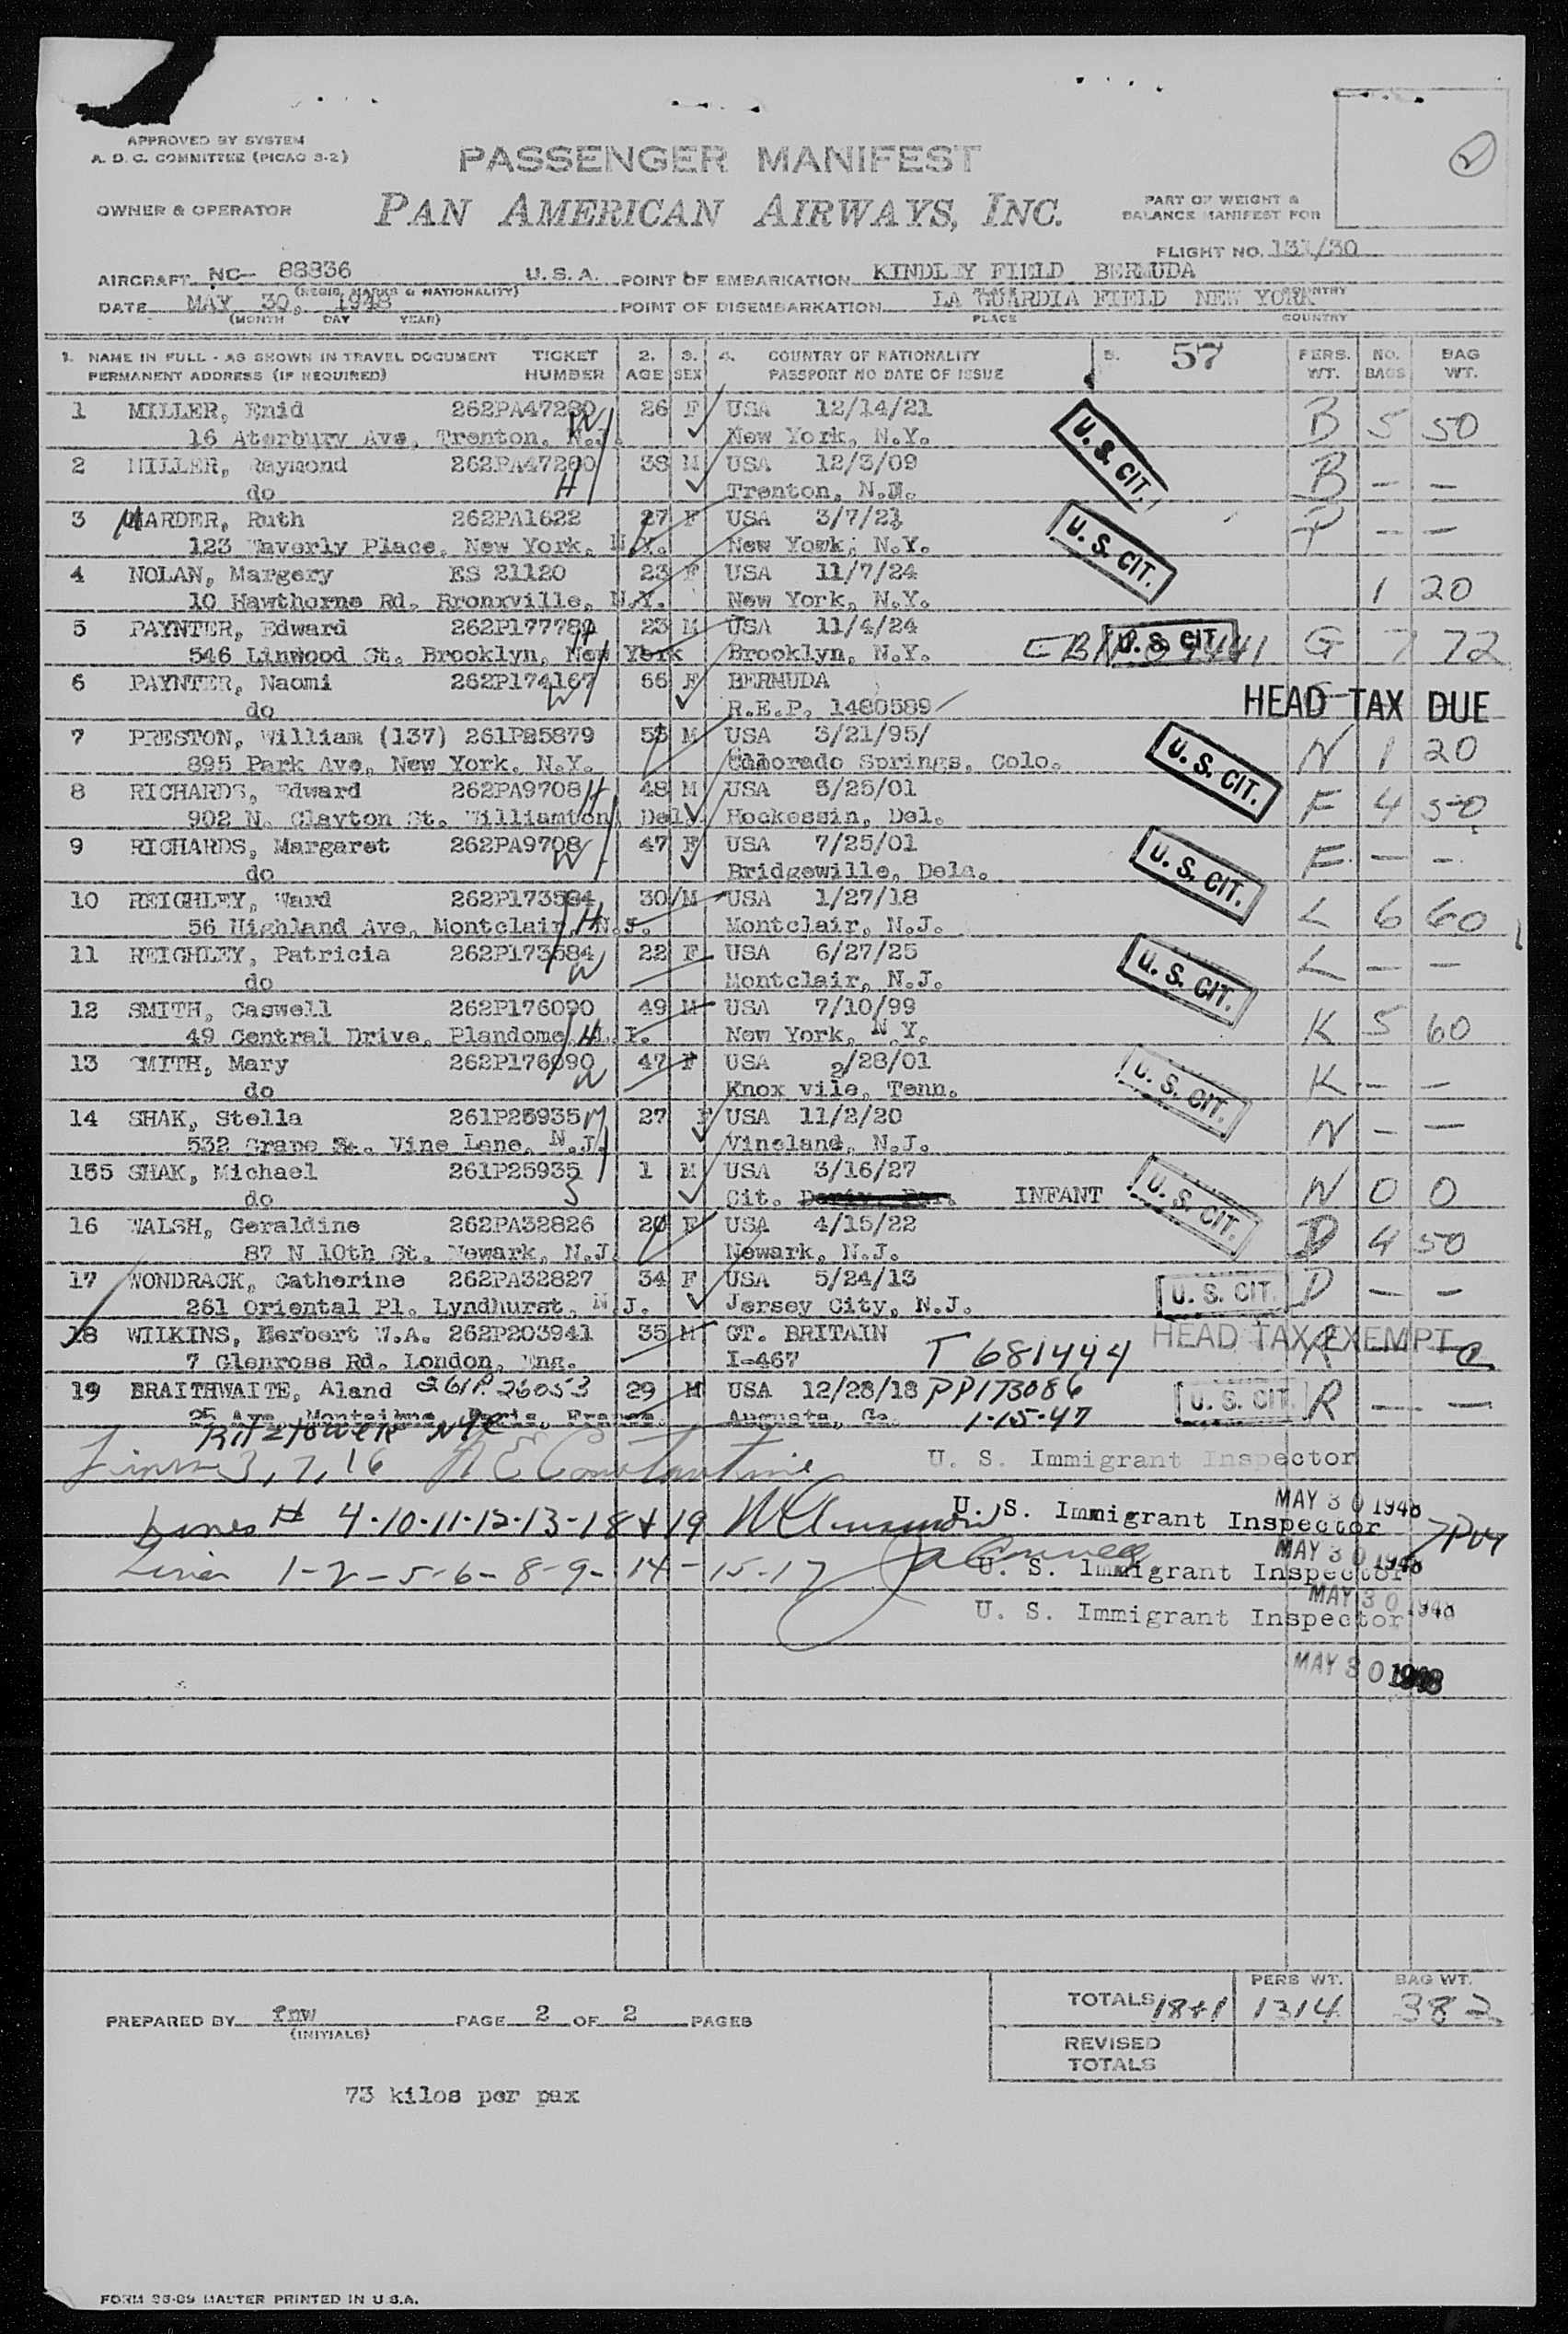 APPROVED BY SYSTEM
A. D. C. COMMITTEE (PICAO S-2)
PASSENGER MANIFEST
2
OWNER & OPERATOR
PAN AMERICAN AIRWAYS, INC.
PART OF WEIGHT &
BALANCE MANIFEST FOR
FLIGHT NO. 131/30
AIRCRAFT NC- 88836 U.S.A. POINT OF EMBARKATION KINDLEY FIELD BERMUDA
(REGIS. MARKS & NATIONALITY) PLACE COUNTRY
DATE MAY 30, 1948 POINT OF DISEMBARKATION LA GUARDIA FIELD NEW YORK
(MONTH DAY YEAR) PLACE COUNTRY
1. NAME IN FULL - AS SHOWN IN TRAVEL DOCUMENT TICKET 2. 3. 4. COUNTRY OF NATIONALITY 5. 57 PERS. NO. BAG
PERMANENT ADDRESS (IF REQUIRED) NUMBER AGE SEX PASSPORT NO DATE OF ISSUE WT. BAGS WT.
1 MILLER, Enid 262PA47280 26 F USA 12/14/21 B 5 50
16 Aterbury Ave, Trenton, N.J. W New York, N.Y. U.S. CIT.
2 MILLER, Raymond 262PA47280 38 M USA 12/3/09 B - -
do H Trenton, N.J.
3 MARDER, Ruth 262PA1622 27 F USA 3/7/21 P - -
123 Waverly Place, New York, N.Y. New York, N.Y. U.S. CIT.
4 NOLAN, Margery ES 21120 23 F USA 11/7/24 1 20
10 Hawthorne Rd. Bronxville, N.Y. New York, N.Y.
5 PAYNTER, Edward 262P177784 23 M USA 11/4/24 U.S. CIT. G 7 72
546 Linwood St. Brooklyn, New York Brooklyn, N.Y.
6 PAYNTER, Naomi 262P174167 66 F BERMUDA HEAD TAX DUE
do W R.E.P. 1480589
7 PRESTON, William (137) 261P85879 53 M USA 3/21/95/ N 1 20
895 Park Ave, New York, N.Y. Colorado Springs, Colo. U.S. CIT.
8 RICHARDS, Edward 262PA9708 H 48 M USA 5/25/01 F 4 50
902 N. Clayton St. Williamton, Del. Hockessin, Del.
9 RICHARDS, Margaret 262PA9708 47 F USA 7/25/01 F - -
do W Bridgewille, Dela. U.S. CIT.
10 REIGHLEY, Ward 262P173584 30 M USA 1/27/18 L 6 60
56 Highland Ave, Montclair, N.J. H Montclair, N.J.
11 REIGHLEY, Patricia 262P173584 22 F USA 6/27/25 L - -
do W Montclair, N.J. U.S. CIT.
12 SMITH, Caswell 262P176090 49 M USA 7/10/99 K 5 60
49 Central Drive, Plandome, L.I. H New York, N.Y.
13 SMITH, Mary 262P176090 47 F USA 2/28/01 K - -
do W Knox vile, Tenn. U.S. CIT.
14 SHAK, Stella 261P25935 M 27 F USA 11/2/20 N - -
532 Grape St. Vine Lane, N.J. Vineland, N.J.
155 SHAK, Michael 261P25935 1 M USA 3/16/27 N 0 0
do S Cit. INFANT U.S. CIT.
16 WALSH, Geraldine 262PA32826 26 F USA 4/15/22 D 4 50
87 N 10th St. Newark, N.J. Newark, N.J.
17 WONDRACK, Catherine 262PA32827 34 F USA 5/24/13 D - -
261 Oriental Pl. Lyndhurst, N.J. Jersey City, N.J. U.S. CIT.
18 WILKINS, Herbert W.A. 262P203941 35 M GT. BRITAIN HEAD TAX EXEMPT
7 Glenross Rd. London, Eng. I-467 T 681444
19 BRAITHWAITE, Aland 261P.26053 29 M USA 12/28/18 PP173086 U.S. CIT. R - -
Paris, France. Augusta, Ga. 1-15-47
RITZ TOWER NYC
Lines 3, 7, 16 U. S. Immigrant Inspector
Lines # 4-10-11-12-13-18+19 U. S. Immigrant Inspector MAY 30 1948
Lines 1-2-5-6-8-9-14-15-17 U. S. Immigrant Inspector MAY 30 1948
U. S. Immigrant Inspector MAY 30 1948
MAY 30 1948
PERS WT. BAG WT.
TOTALS 18+1 1314 382
PREPARED BY fnw PAGE 2 OF 2 PAGES
(INITIALS)
REVISED
TOTALS
73 kilos per pax
FORM 96-09 MASTER PRINTED IN U.S.A.